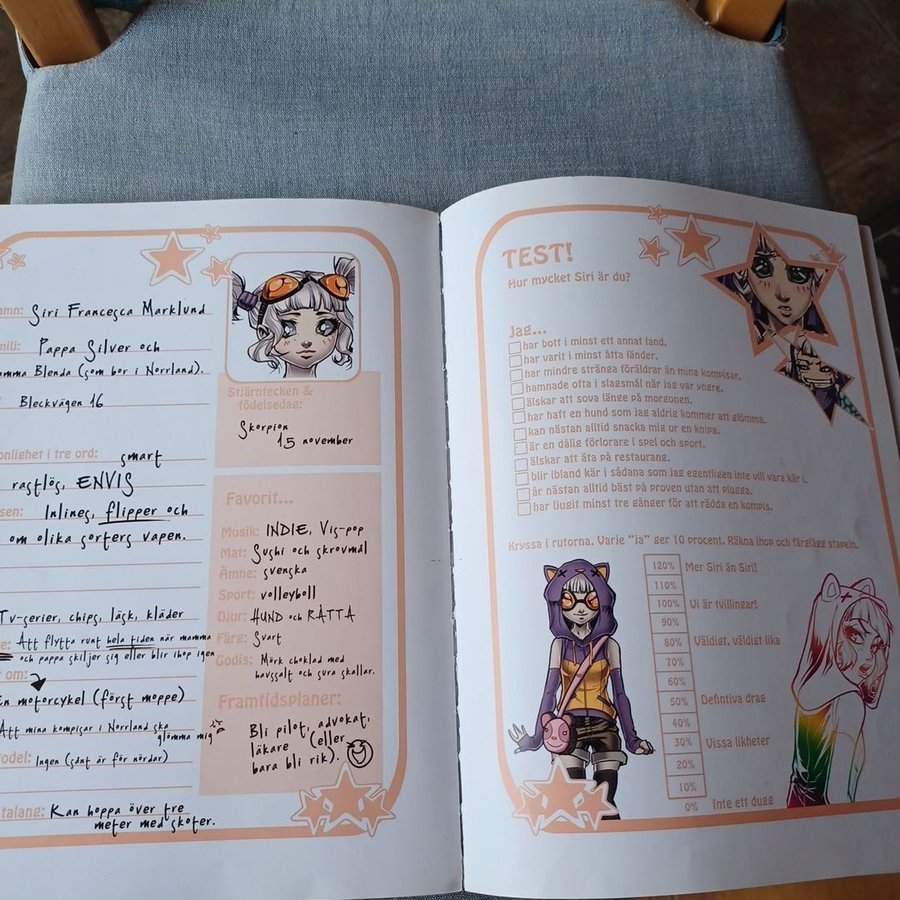 Siri Francesca Marklund
Pappa Silver och
Blenda (som bor i Norrland).
Bleckvägen 16
i tre ord: smart
rastlös, ENVIS
Inlines, flipper och
om olika sorters vapen.
Tv-serier, chips, läsk, kläder
Att flytta runt hela tiden när mamma
och pappa skiljer sig eller blir ihop igen
om:
En motorcykel (först moppe)
Att mina kompisar i Norrland ska
glömma mig
Ingen (sånt är för nördar)
Kan hoppa över tre
meter med skoter.
Stjärntecken &
födelsedag:
Skorpion
15 november
Favorit...
Musik: INDIE, Vis-pop
Mat: Sushi och skrovmål
Ämne: svenska
Sport: volleyboll
Djur: HUND och RÅTTA
Färg: Svart
Godis: Mörk choklad med
havssalt och sura skallar.
Framtidsplaner:
Bli pilot, advokat,
läkare (eller
bara bli rik).
TEST!
Hur mycket Siri är du?
Jag...
har bott i minst ett annat land.
har varit i minst åtta länder.
har mindre stränga föräldrar än mina kompisar.
hamnade ofta i slagsmål när jag var yngre.
älskar att sova länge på morgonen.
har haft en hund som jag aldrig kommer att glömma.
kan nästan alltid snacka mig ur en knipa.
är en dålig förlorare i spel och sport.
älskar att äta på restaurang.
blir ibland kär i sådana som jag egentligen inte vill vara kär i.
är nästan alltid bäst på proven utan att plugga.
har ljugit minst tre gånger för att rädda en kompis.
Kryssa i rutorna. Varje "ja" ger 10 procent. Räkna ihop och färglägg stapeln.
120% Mer Siri än Siri!
110%
100% Vi är tvillingar!
90%
80% Väldigt, väldigt lika
70%
60%
50% Defintiva drag
40%
30% Vissa likheter
20%
10%
0% Inte ett dugg